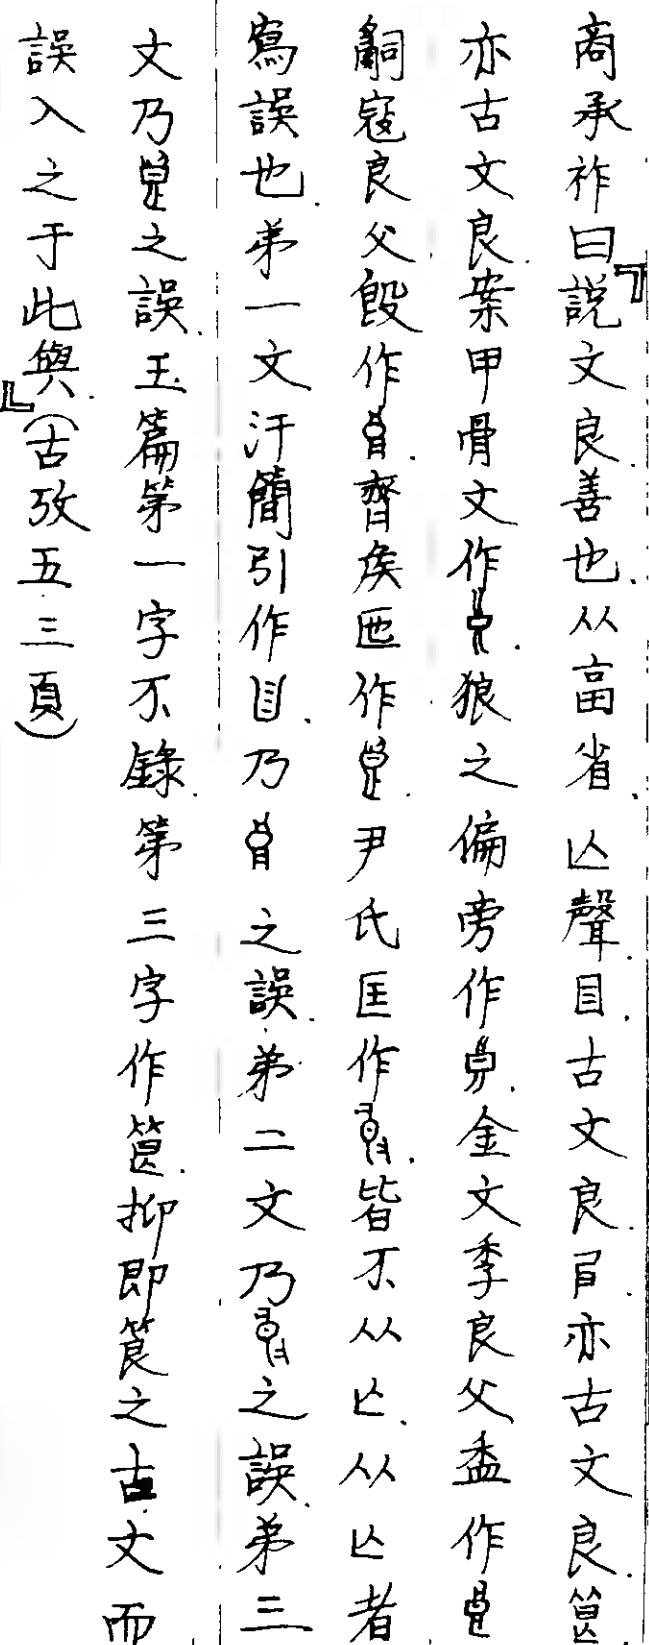 商承祚曰『說文良善也.从畗省.亾聲.目古文良.㠯亦古文良.筤
亦古文良.案甲骨文作.狼之偏旁作.金文季良父盉作
嗣寇良父𣪘作.齊矦匜作.尹氏匡作.皆不从亾.从亾者
寫誤也.弟一文汗簡引作目.乃之誤.弟二文乃之誤.弟三
文乃之誤.玉篇第一字不錄.第三字作.抑即筤之古文而
誤入之于此與.』(古攷五三頁)